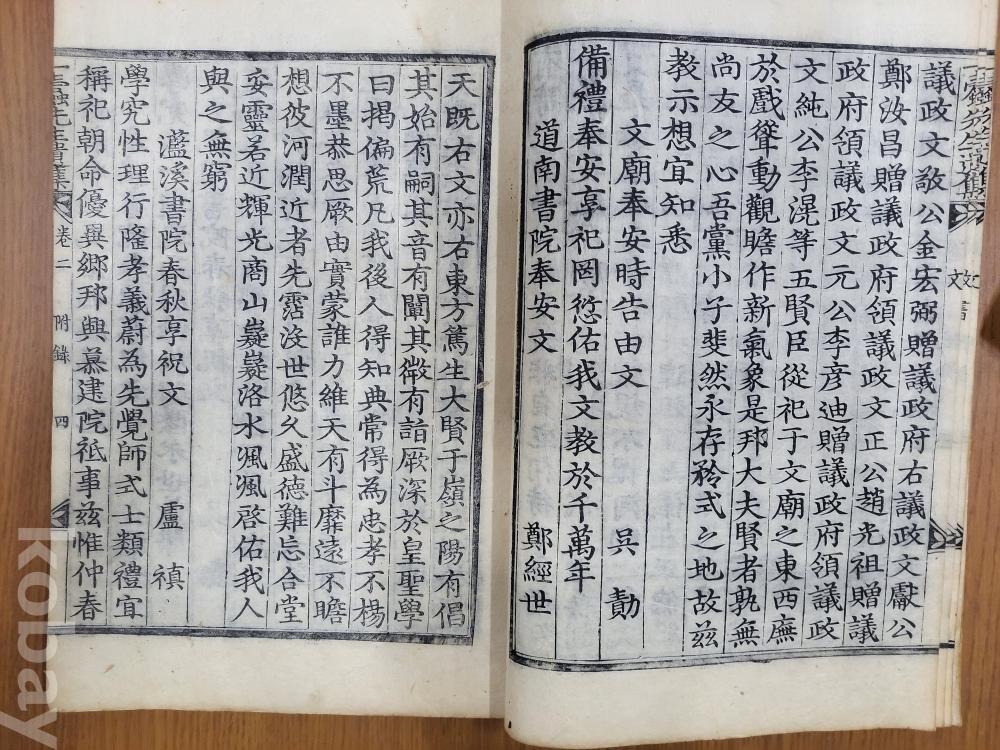 議政文敬公金宏弼贈議政府右議政文獻公
鄭汝昌贈議政府領議政文正公趙光祖贈議
政府領議政文元公李彦迪贈議政府領議政
文純公李滉等五賢臣從祀于文廟之東西廡
於戲聳動觀瞻作新氣象是邦大夫賢者孰無
尚友之心吾黨小子斐然永存矜式之地故玆
教示想宜知悉
文廟奉安時告由文 吳勛
備禮奉安享祀罔愆佑我文教於千萬年
道南書院奉安文 鄭經世
天既右文亦右東方篤生大賢于嶺之陽有倡
其始有嗣其音有闡其微有詣厥深於皇聖學
曰揭偏荒凡我後人得知典常得為忠孝不楊
不墨恭思厥由實蒙誰力維天有斗靡遠不瞻
想彼河潤近者先霑沒世悠久盛德難忘合堂
妥靈若近輝光商山嶷嶷洛水渢渢啓佑我人
與之無窮
灆溪書院春秋享祝文 盧禛
學究性理行隆孝義蔚為先覺師式士類禮宜
稱祀朝命優異鄉邦興慕建院祗事玆惟仲春
卷二 附錄 四
kobay